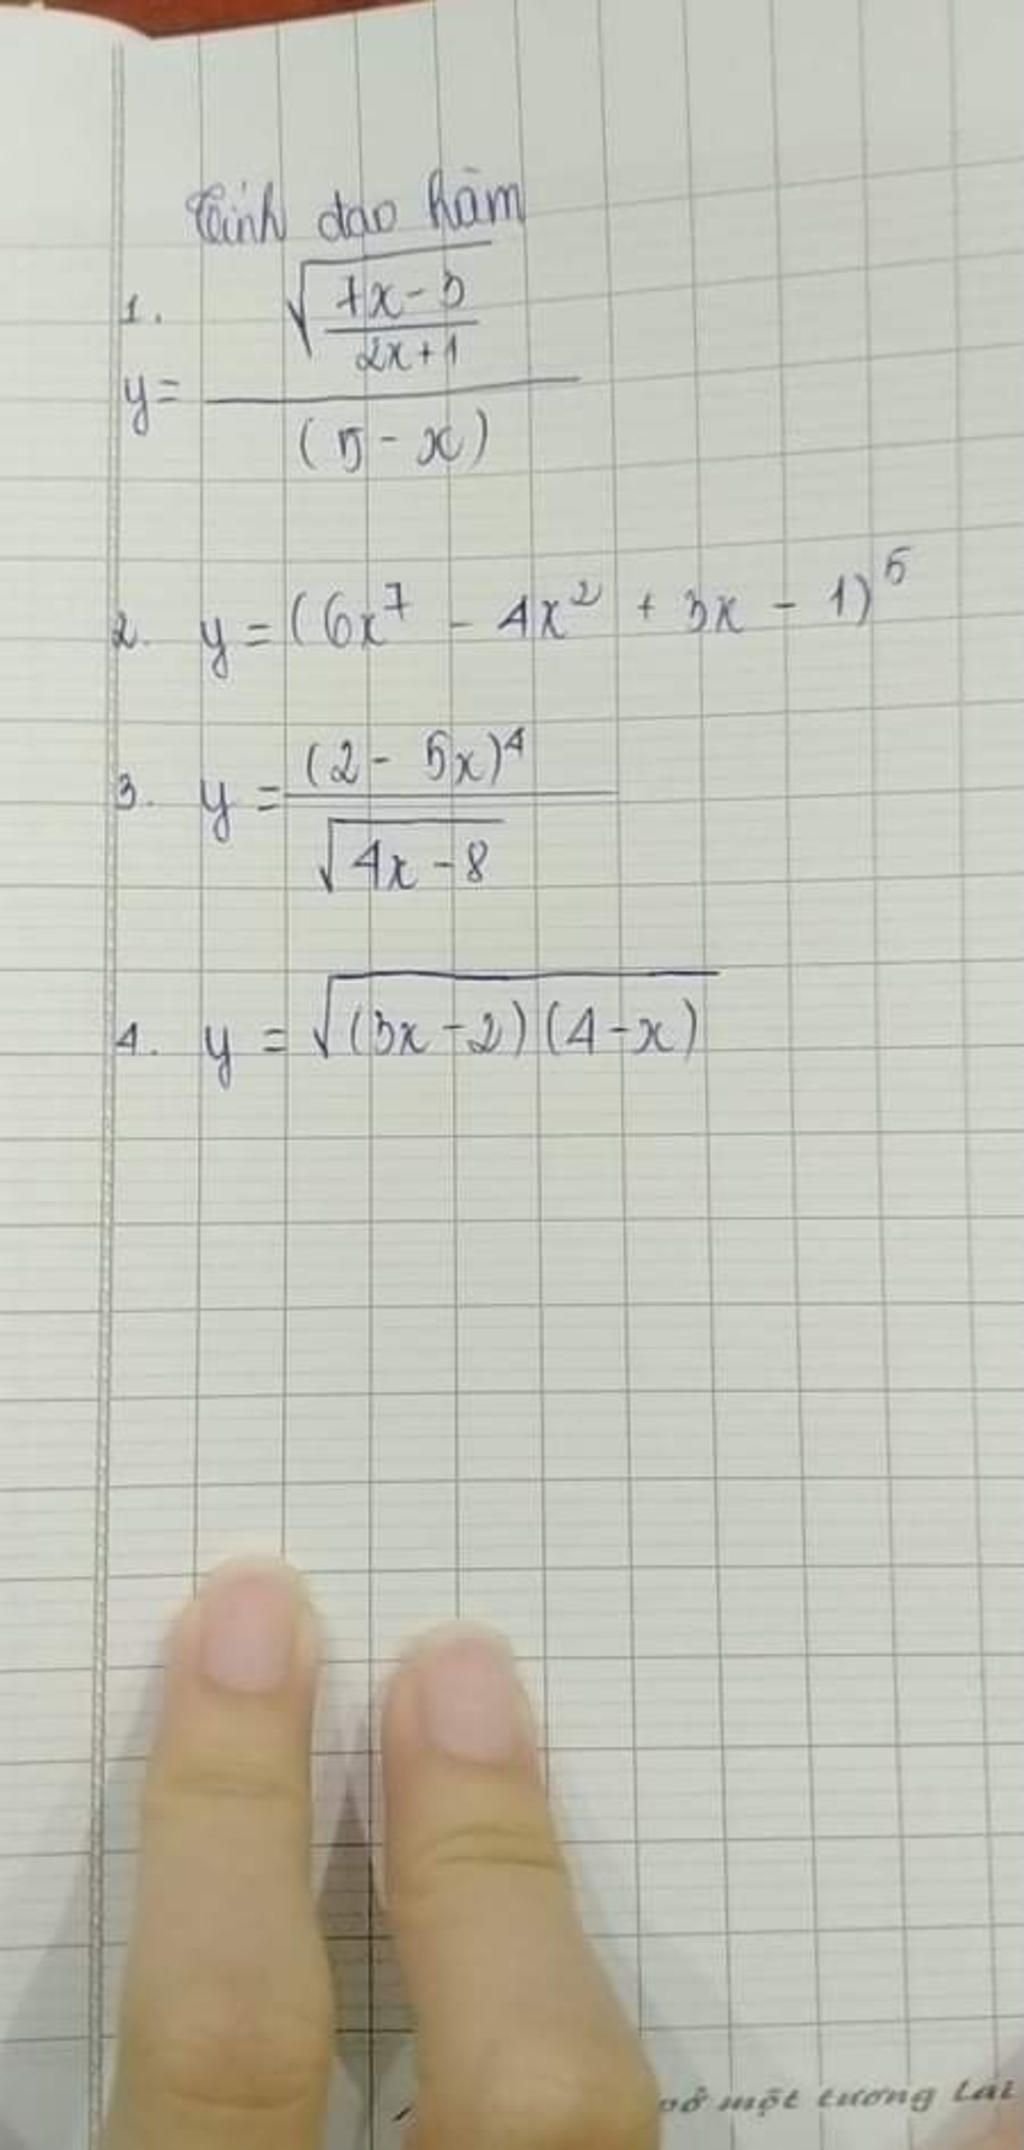 Tính đạo hàm
1. y = \frac{\sqrt{\frac{7x-3}{2x+1}}}{(5-x)}
2. y = (6x^7 - 4x^2 + 3x - 1)^5
3. y = \frac{(2 - 5x)^4}{\sqrt{4x-8}}
4. y = \sqrt{(3x-2)(4-x)}
vở một tương lai